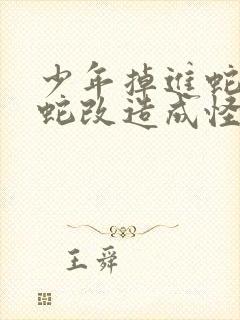 少年掉进蛇
蛇改造成怪
王舜